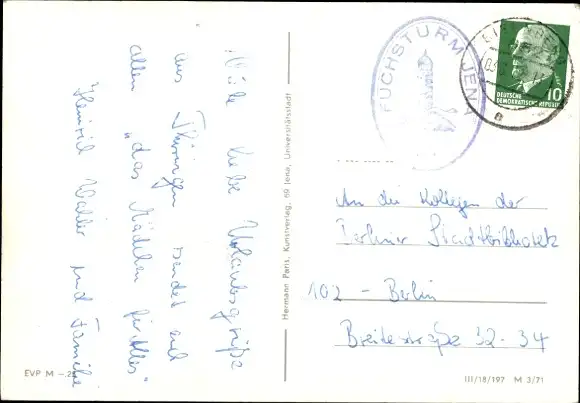 liebe Urlaubsgrüße
aus Thüringen sendet euch
allen „das Mädchen für Alles"
Heinrich und Familie
EVP M –.25
Hermann Paris, Kunstverlag, 69 Jena, Universitätsstadt
FUCHSTURM JENA
DEUTSCHE
DEMOKRATISCHE REPUBLIK
10
An die Kollegen der
Berliner Stadtbibliothek
102 – Berlin
Breitestraße 32-34
III/18/197 M 3/71